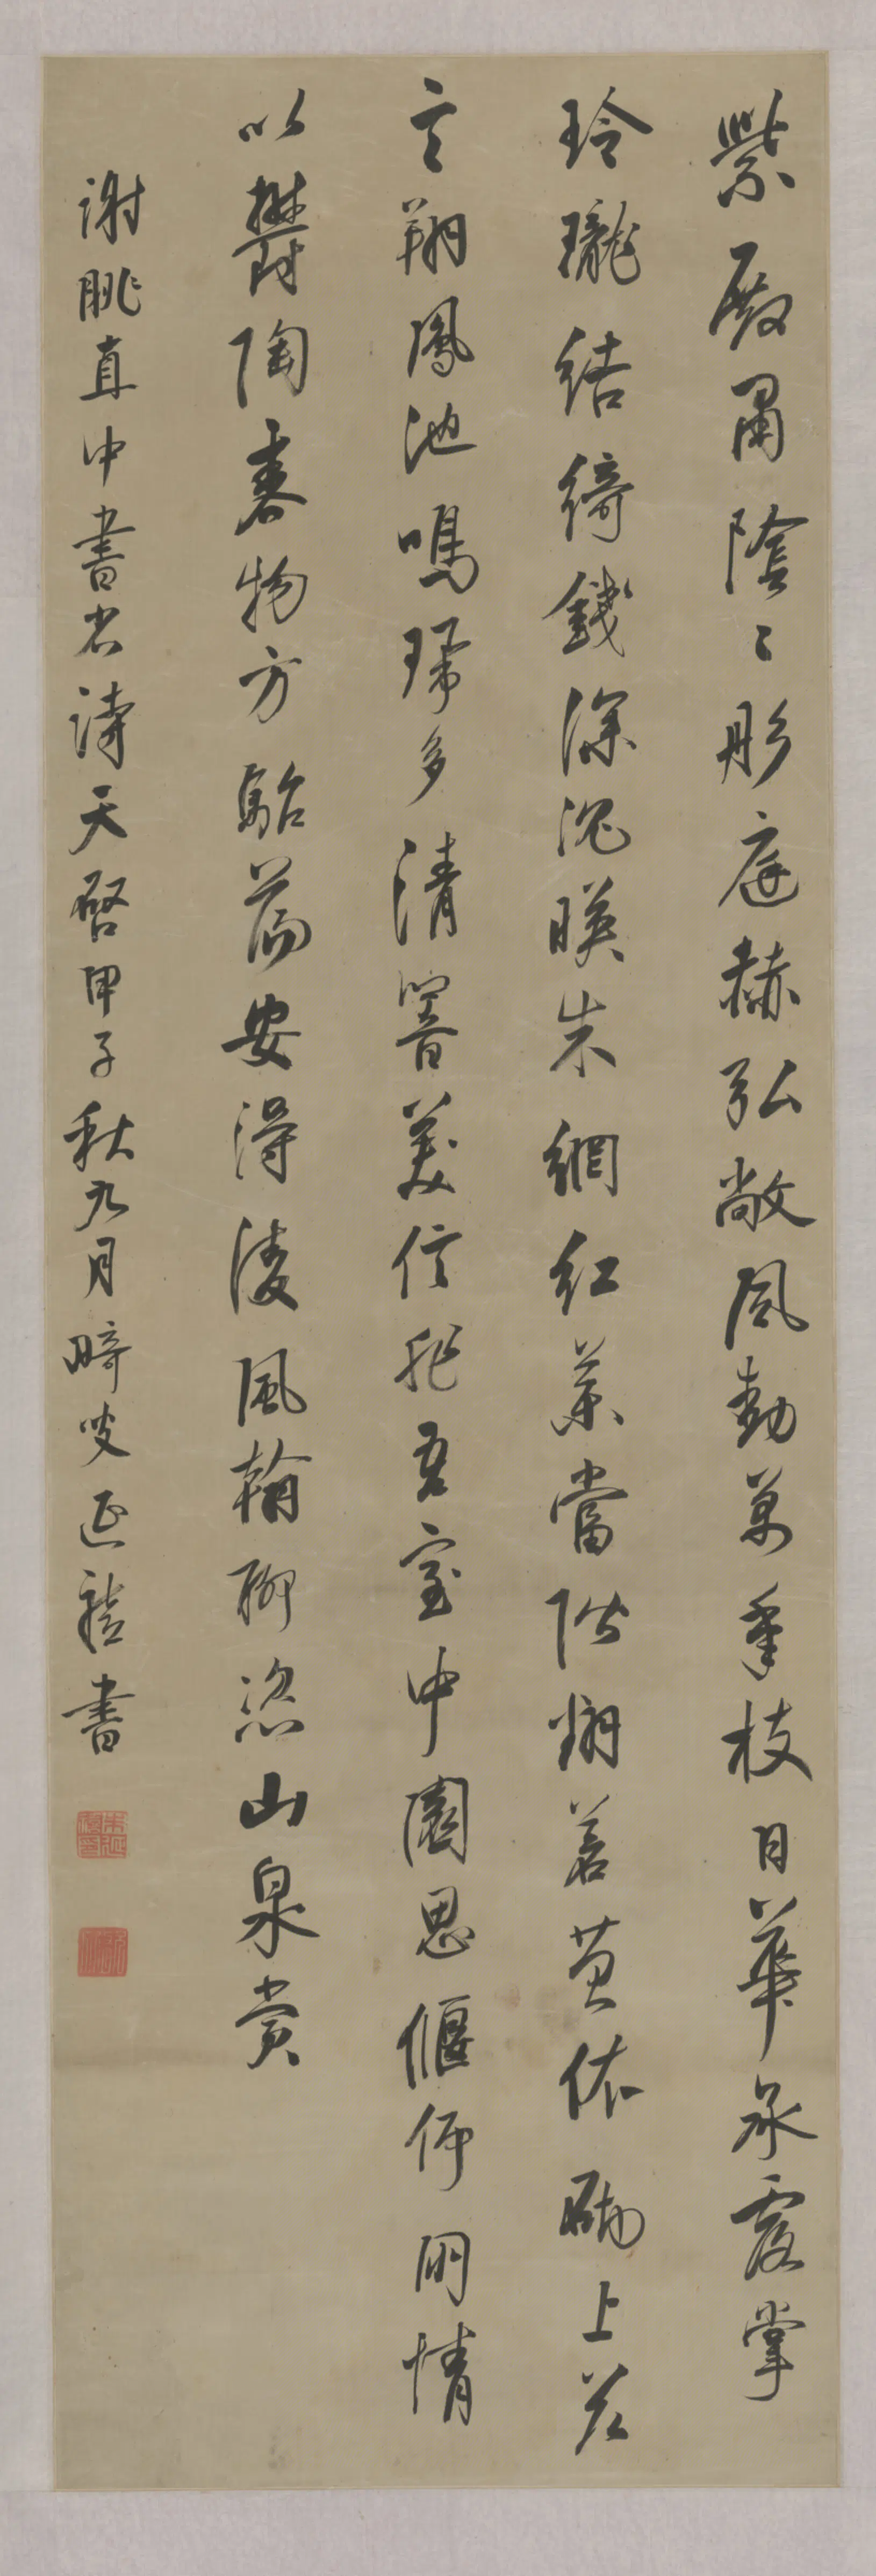 紫殿肅陰〻彤庭赫弘敞風動萬年枝日華承露掌
玲瓏結綺錢深沉暎朱網紅藥當階翻蒼苔依砌上茲
言翔鳳池鳴珮多清響美信非吾室中園思偃仰朋情
以鬱陶春物方駘蕩安得淩風翰聊恣山泉賞
謝朓直中書省詩天啓甲子秋九月畸叟延禧書
朱延禧印